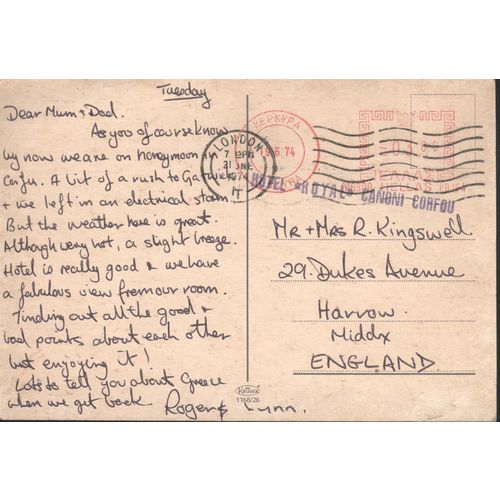 Tuesday
Dear Mum + Dad.
As you of course know
by now we are on honeymoon
Corfu. A bit of a rush to Gatwick
+ we left in an electrical storm
But the weather here is great.
Although very hot, a slight breeze.
Hotel is really good & we have
a fabulous view from our room.
Finding out all the good +
bad points about each other
but enjoying it!
Lots to tell you about Greece
when we get back
Roger & Lynn.
ΚΕΡΚΥΡΑ
6.74
LONDON
7 PM
21 JNE
1974
HOTEL "ROYAL" CANONI CORFOU
ΕΛΛΑΣ
HELLAS
Mr + Mrs R. Kingswell
29. Dukes Avenue
Harrow.
Middx
ENGLAND.
1168/26